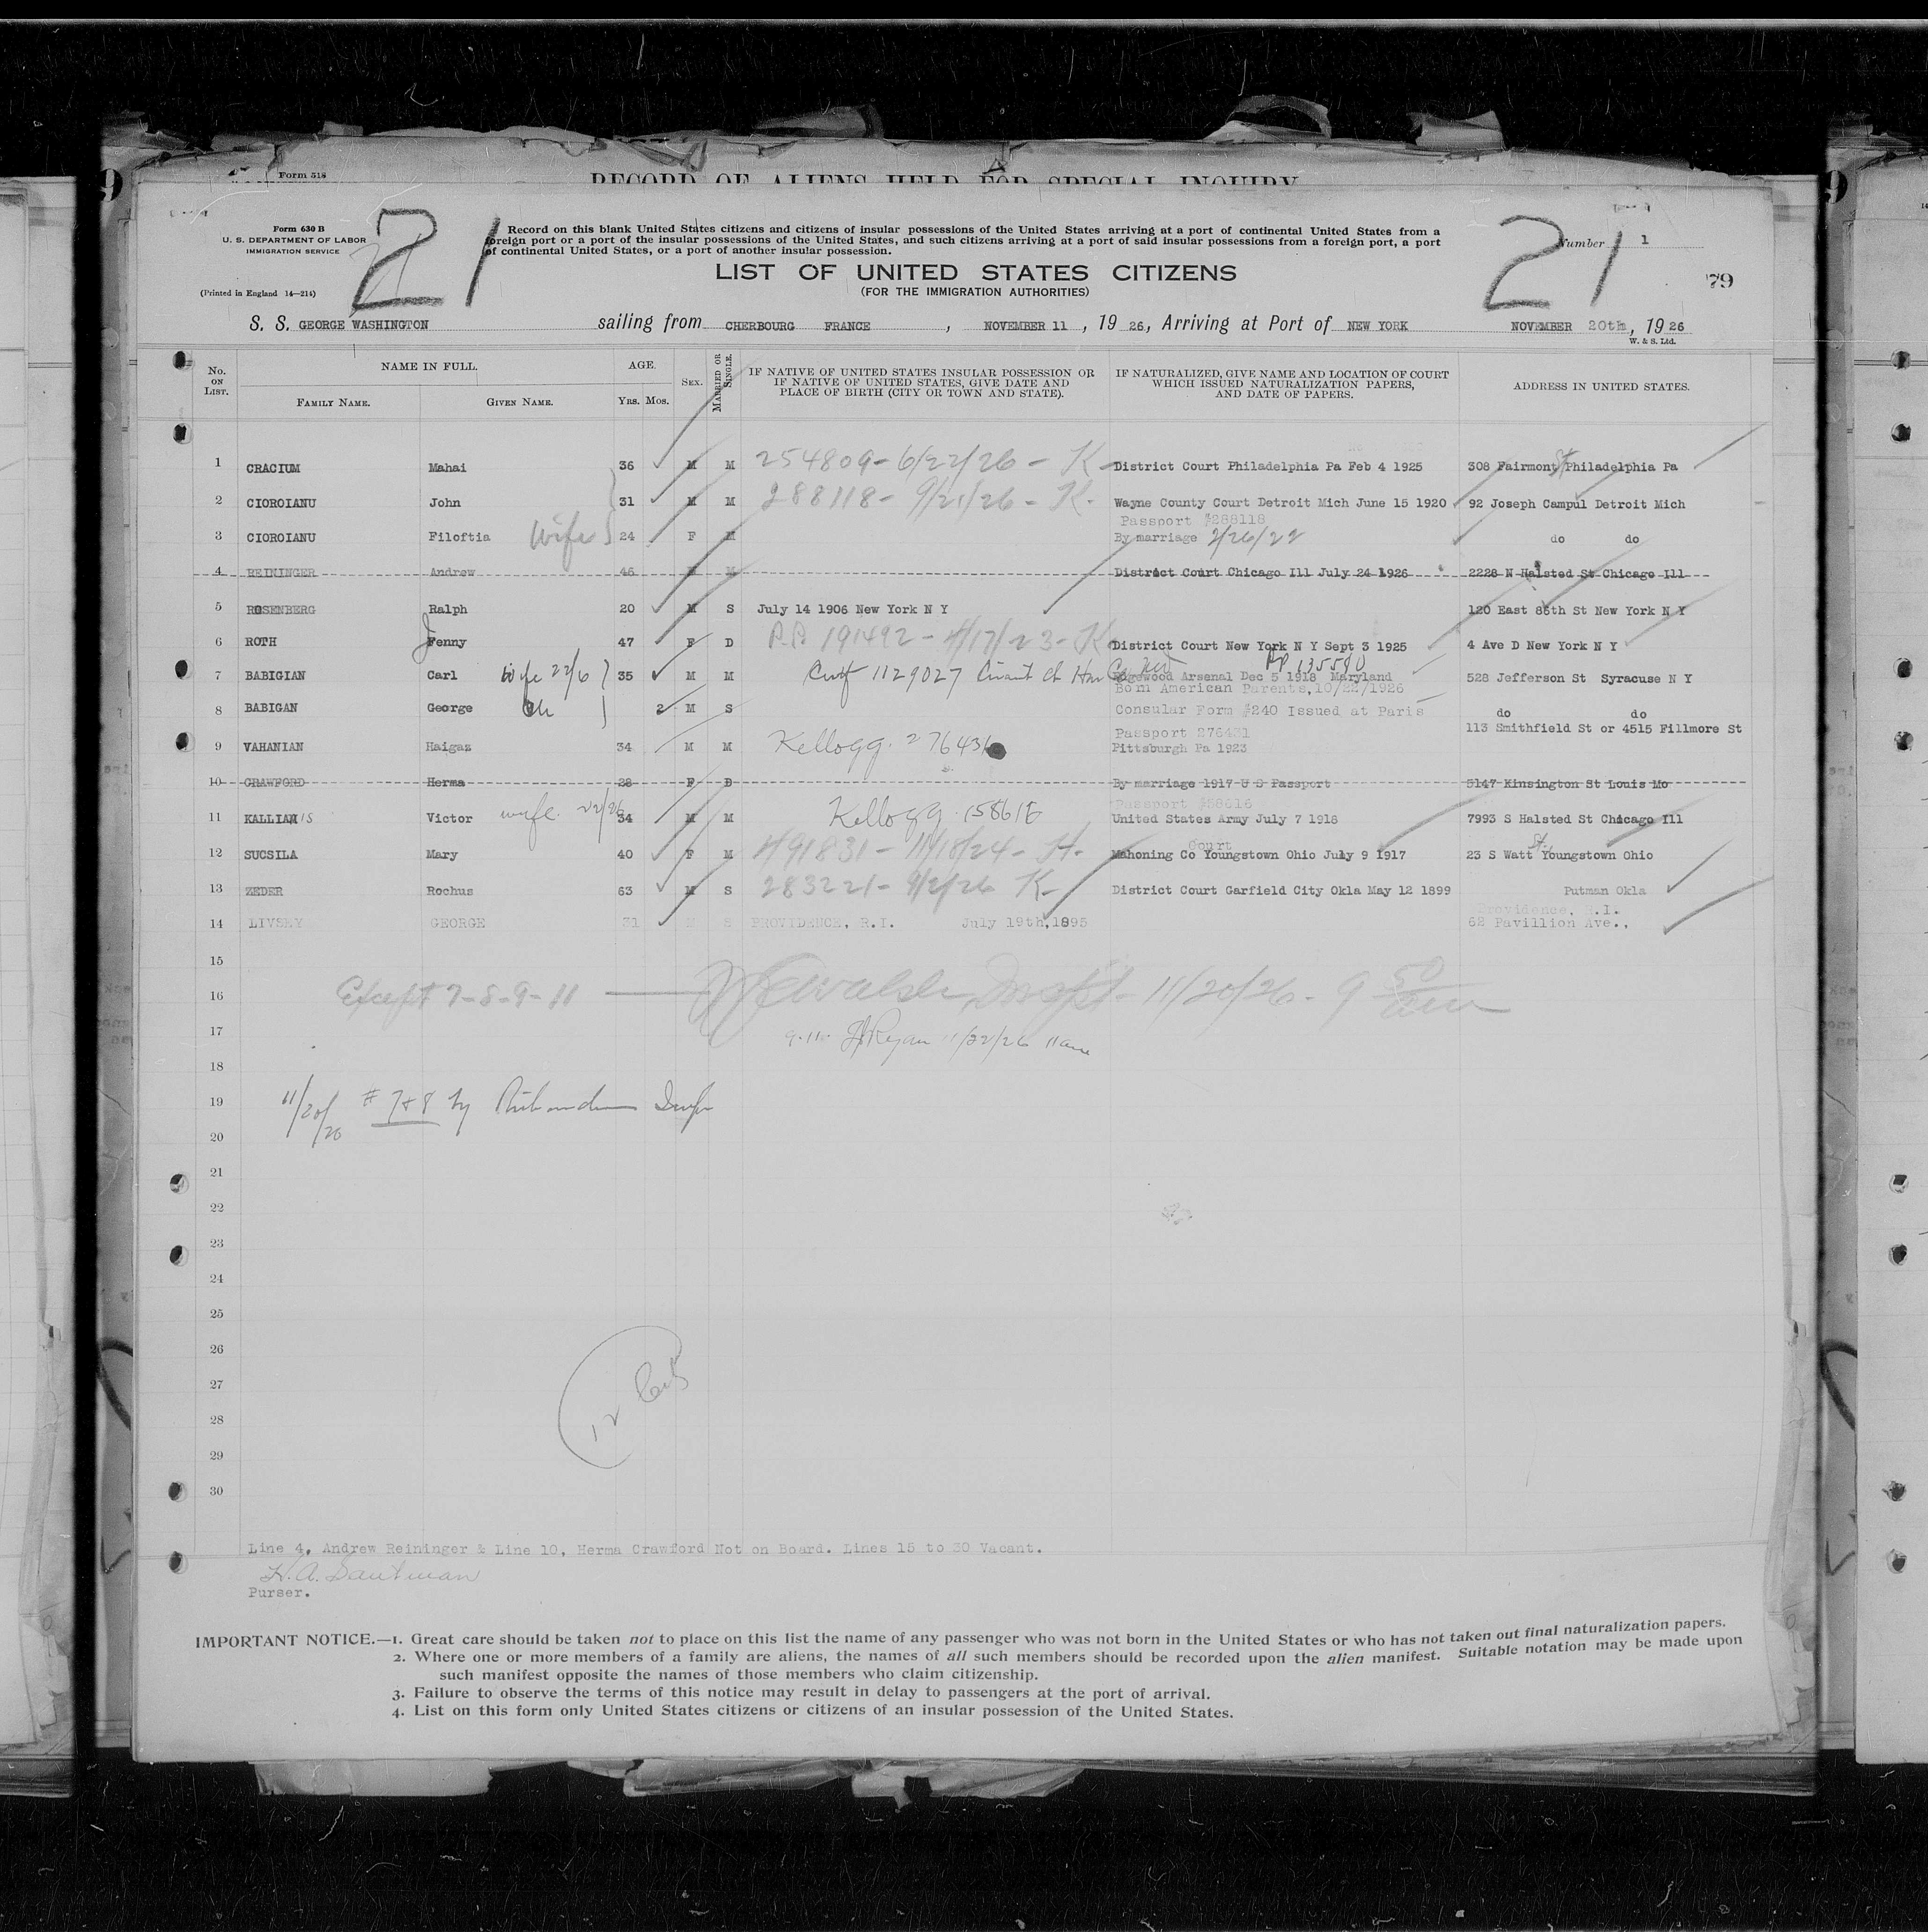 Form 518
RECORD OF ALIENS HELD FOR SPECIAL INQUIRY
Form 630 B
U. S. DEPARTMENT OF LABOR
IMMIGRATION SERVICE
(Printed in England 14—214)
21
Record on this blank United States citizens and citizens of insular possessions of the United States arriving at a port of continental United States from a
foreign port or a port of the insular possessions of the United States, and such citizens arriving at a port of said insular possessions from a foreign port, a port
of continental United States, or a port of another insular possession.
LIST OF UNITED STATES CITIZENS
(FOR THE IMMIGRATION AUTHORITIES)
21
Number 1
79
S. S. GEORGE WASHINGTON sailing from CHERBOURG FRANCE, NOVEMBER 11, 19 26, Arriving at Port of NEW YORK NOVEMBER 20th, 19 26
W. & S. Ltd.
No. ON LIST. NAME IN FULL. FAMILY NAME. GIVEN NAME. AGE. Yrs. Mos. SEX. MARRIED OR SINGLE. IF NATIVE OF UNITED STATES INSULAR POSSESSION OR IF NATIVE OF UNITED STATES, GIVE DATE AND PLACE OF BIRTH (CITY OR TOWN AND STATE). IF NATURALIZED, GIVE NAME AND LOCATION OF COURT WHICH ISSUED NATURALIZATION PAPERS, AND DATE OF PAPERS. ADDRESS IN UNITED STATES.
1 CRACIUM Mahai 36 M M 254809-6/22/26-K- District Court Philadelphia Pa Feb 4 1925 308 Fairmont St Philadelphia Pa
2 CIOROIANU John 31 M M 288118-9/21/26-K- Wayne County Court Detroit Mich June 15 1920 92 Joseph Campul Detroit Mich
Passport #288118
3 CIOROIANU Filoftia wife 24 F M By marriage 2/26/22 do do
4 REININGER Andrew 46 M M District Court Chicago Ill July 24 1926 2228 N Halsted St Chicago Ill
5 ROSENBERG Ralph 20 M S July 14 1906 New York N Y 120 East 86th St New York N Y
6 ROTH Jenny 47 F D P.P. 191492-4/17/23-K- District Court New York N Y Sept 3 1925 4 Ave D New York N Y
PP 135580
7 BABIGIAN Carl wife 22/6 35 M M Cert 1129027 Edgewood Arsenal Dec 5 1918 Maryland 528 Jefferson St Syracuse N Y
Born American Parents, 10/22/1926
8 BABIGAN George Ch 2 M S Consular Form #240 Issued at Paris do do
Passport 276431 113 Smithfield St or 4515 Fillmore St
9 VAHANIAN Haigaz 34 M M Kellogg. 276431 Pittsburgh Pa 1923
10 CRAWFORD Herma 28 F D By marriage 1917 U S Passport 5147 Kinsington St Louis Mo
Passport #58616
11 KALLIANIS Victor wife 22/26 34 M M Kellogg. United States Army July 7 1918 7993 S Halsted St Chicago Ill
Court
12 SUCSILA Mary 40 F M 491831-11/18/24-H- Mahoning Co Youngstown Ohio July 9 1917 23 S Watt St. Youngstown Ohio
13 ZEDER Rochus 63 M S 283221-9/2/26 K- District Court Garfield City Okla May 12 1899 Putman Okla
Providence, R.I.
14 LIVSEY GEORGE 31 M S PROVIDENCE, R.I. July 19th, 1895 62 Pavillion Ave.,
15
16 Except 7-8-9-11 Walsh Inspt-11/20/26-9 50 am
17 9-11- Ryan 11/22/26 11am
18
19 11/20/26 # 7 & 8 by
20
21
22
23
24
25
26
27
28
29
30
12
Line 4, Andrew Reininger & Line 10, Herma Crawford Not on Board. Lines 15 to 30 Vacant.
Purser.
IMPORTANT NOTICE.—1. Great care should be taken not to place on this list the name of any passenger who was not born in the United States or who has not taken out final naturalization papers.
2. Where one or more members of a family are aliens, the names of all such members should be recorded upon the alien manifest. Suitable notation may be made upon
such manifest opposite the names of those members who claim citizenship.
3. Failure to observe the terms of this notice may result in delay to passengers at the port of arrival.
4. List on this form only United States citizens or citizens of an insular possession of the United States.